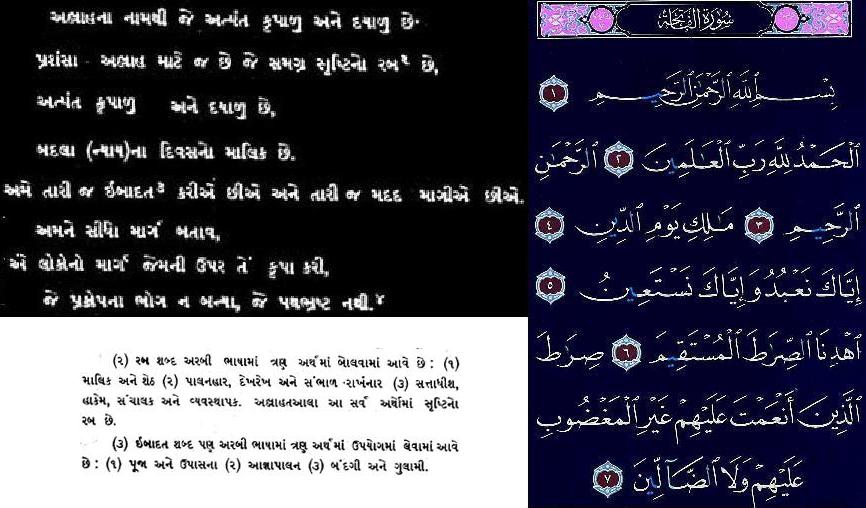 અલ્લાહના નામથી જે અત્યંત કૃપાળુ અને દયાળુ છે.
પ્રશંસા અલ્લાહ માટે જ છે જે સમગ્ર સૃષ્ટિનો રબ૨ છે,
અત્યંત કૃપાળુ અને દયાળુ છે,
બદલા (ન્યાય)ના દિવસનો માલિક છે.
અમે તારી જ ઇબાદત૩ કરીએ છીએ અને તારી જ મદદ માગીએ છીએ.
અમને સીધો માર્ગ બતાવ,
એ લોકોનો માર્ગ જેમની ઉપર તેં કૃપા કરી,
જે પ્રકોપના ભોગ ન બન્યા, જે પથભ્રષ્ટ નથી.૪
(૨) રબ શબ્દ અરબી ભાષામાં ત્રણ અર્થમાં બોલવામાં આવે છે : (૧)
માલિક અને શેઠ (૨) પાલનહાર, દેખરેખ અને સંભાળ રાખનાર (૩) સત્તાધીશ,
હાકેમ, સંચાલક અને વ્યવસ્થાપક. અલ્લાહતઆલા આ સર્વ અર્થોમાં સૃષ્ટિનો
રબ છે.
(૩) ઇબાદત શબ્દ પણ અરબી ભાષામાં ત્રણ અર્થમાં ઉપયોગમાં લેવામાં આવે
છે : (૧) પૂજા અને ઉપાસના (૨) આજ્ઞાપાલન (૩) બંદગી અને ગુલામી.
سُورَةُ الفَاتِحَة
بِسْمِ ٱللَّهِ ٱلرَّحْمَٰنِ ٱلرَّحِيمِ ١
ٱلْحَمْدُ لِلَّهِ رَبِّ ٱلْعَٰلَمِينَ ٢ ٱلرَّحْمَٰنِ
ٱلرَّحِيمِ ٣ مَٰلِكِ يَوْمِ ٱلدِّينِ ٤
إِيَّاكَ نَعْبُدُ وَإِيَّاكَ نَسْتَعِينُ ٥
ٱهْدِنَا ٱلصِّرَٰطَ ٱلْمُسْتَقِيمَ ٦ صِرَٰطَ
ٱلَّذِينَ أَنْعَمْتَ عَلَيْهِمْ غَيْرِ ٱلْمَغْضُوبِ
عَلَيْهِمْ وَلَا ٱلضَّآلِّينَ ٧